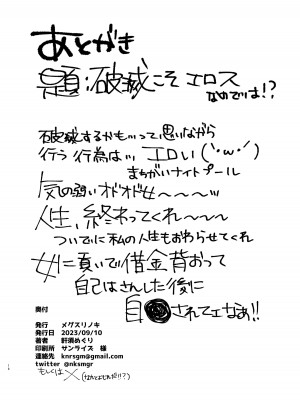 あとがき
題:破滅こそエロス
なのでは!?
破滅するかも…って思いながら
行う行為は… エロい(´・ω・`)
まちがいナイトプール
気の弱いオドオド女〜〜〜…
人生、終わってくれ〜〜〜
ついでに私の人生もおわらせてくれ
女に貢いで借金背おって
自己はさんした後に
自●されてェなあ!!
奥付
発行 メグスリノキ
発行日 2023/09/10
著者 軒須めぐり
印刷所 サンライズ 様
連絡先 knrsgm@gmail.com
twitter @nksmgr
もしくは X